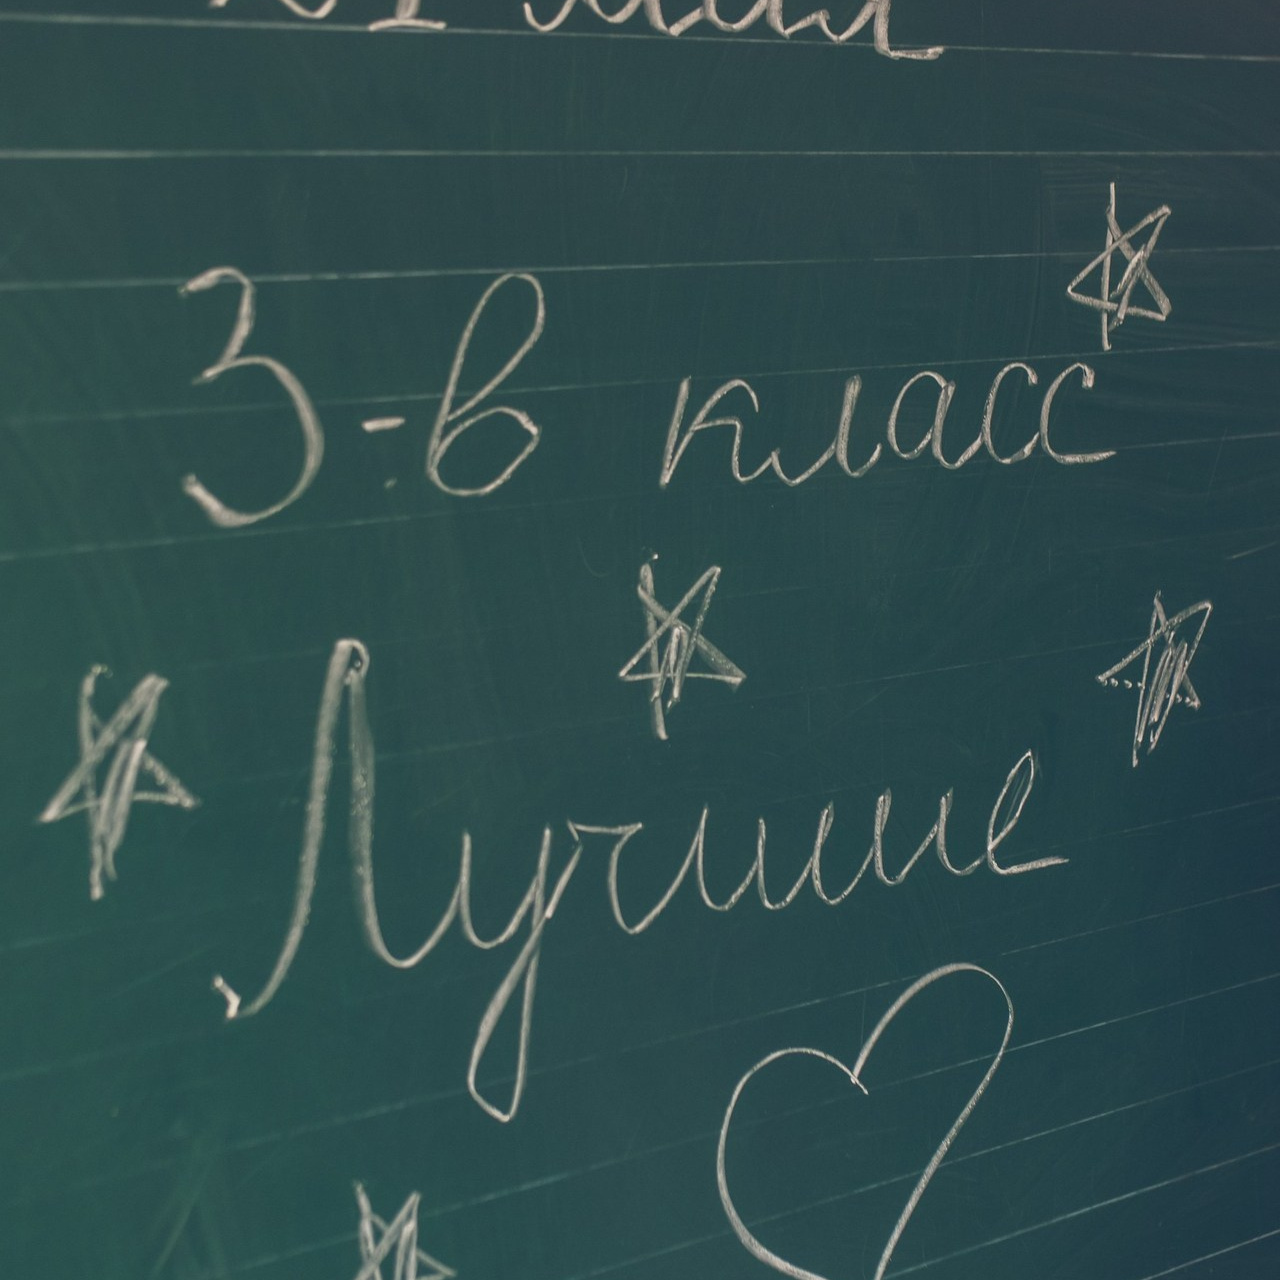 мая
3-в класс
Лучшие